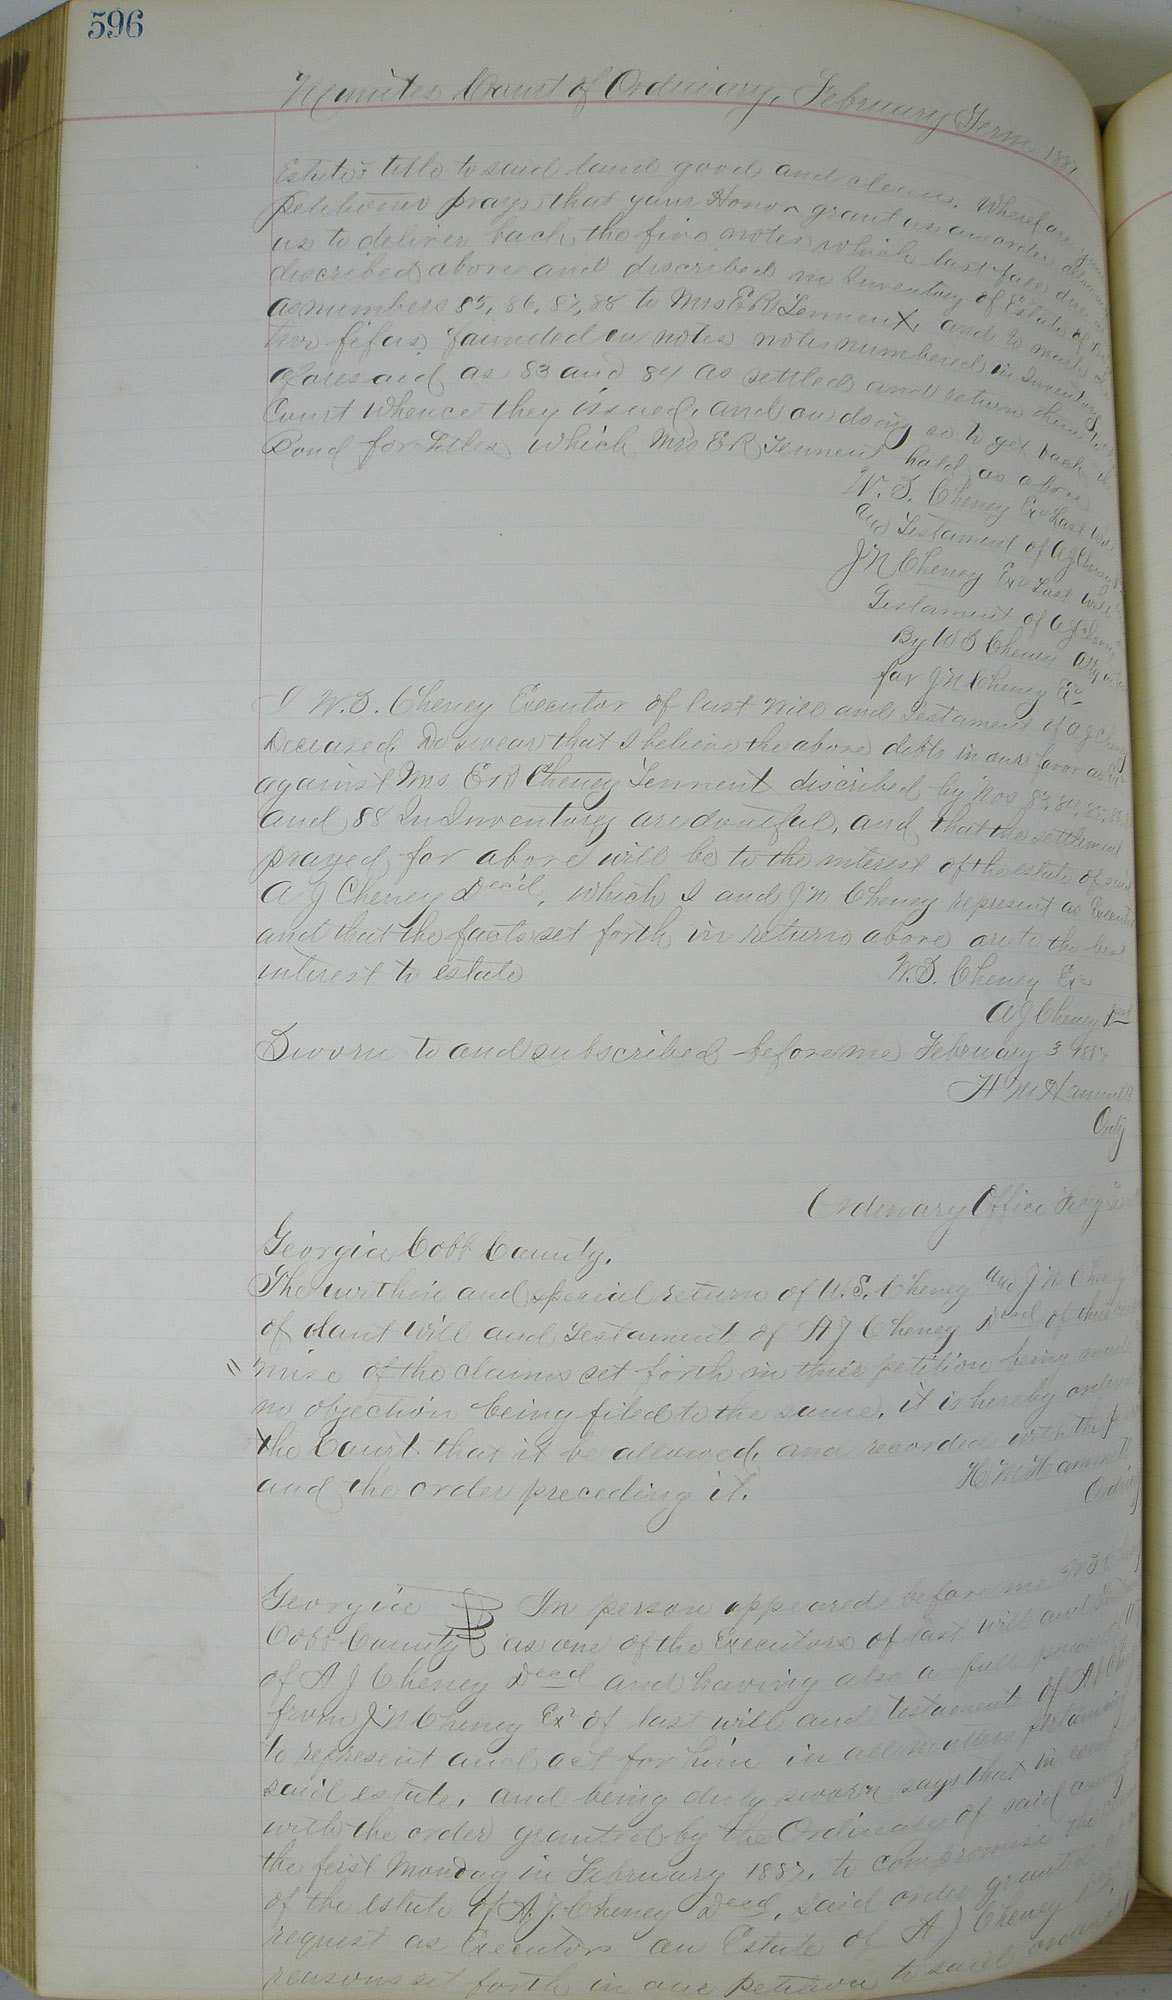 596
Minutes Court of Ordinary, February Term 1887
Estate title to said land good and clear. Wherefore your
petitioner prays that your Honor grant us an order
us to deliver back the five notes which last falls due
described above and discribed in Inventory of Estate of
as numbers 85, 86, 87, 88 to Mrs E R Tennent and to mark the
two fifas founded on notes notes numbered in Inventory
aforesaid as 83 and 84 as settled and return them to
Court whence they issued, and on doing so to get back the
Bond for Titles which Mrs E R Tennent held as above
W. S. Cheney Exr Last Will
and Testament of A J Cheney
J N Cheney Exr Last Will
Testament of A J Cheney
By W S Cheney Atty
for J N Cheney Exr
I W. S. Cheney Executor of last Will and Testament of A J Cheney
Deceased, Do swear that I believe the above debts in our favor as Exr
against Mrs E R Cheney Tennent discribed by Nos 83, 84, 85, 86
and 88 In Inventory are doutful, and that the settlement
prayed for above will be to the interest of the estate of said
A J Cheney Dec'd, which I and J N Cheney represent as Executors
and that the facts set forth in return above are to the best
interest to estate W. S. Cheney Exr
A J Cheney
Sworn to and subscribed before me February 3 1887
H M Hammett
Ordy
Ordinary Office Feby Term
Georgia Cobb County,
The within and special return of W. S. Cheney and J N Cheney
of last Will and Testament of A J Cheney Decd of
of the claims set forth in their petition being made
no objection being filed to the same, it is hereby ordered
the Court that it be allowed, and recorded with the
and the order preceding it. H M Hammett
Ordinary
Georgia In person appeared before me W S Cheney
Cobb County as one of the Executors of last will and
of A J Cheney Decd and having also a full power of
from J N Cheney Exr of last will and testament of A J
to represent and act for him in all matters pertaining
said estate, and being duly sworn, says that in
with the order granted by the Ordinary of said county
the first Monday in February 1887, to compromise the
of the estate of A. J. Cheney Decd, said order granted
request as Executors on Estate of A J Cheney
reasons set forth in our petition to said